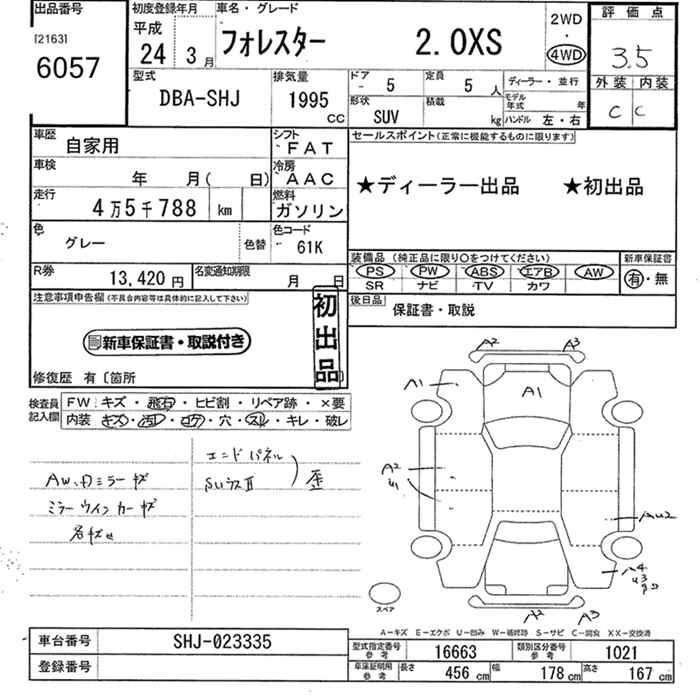 出品番号
[2163]
6057
初度登録年月
平成
24年 3月
車名・グレード
フォレスター 2.0XS
2WD
・
4WD
評価点
3.5
外装 内装
C C
型式
DBA-SHJ
排気量
1995
CC
ドア
- 5
定員
5 人
形状
SUV
積載
kg
ディーラー・並行
モデル年式 年
ハンドル 左・右
車歴
自家用
シフト
FAT
車検
年 月( 日)
冷房
AAC
走行
4万5千788 km
燃料
ガソリン
色
グレー
色替
色コード
61K
R券
13,420 円
名変通知期限
月 日
セールスポイント(正常に機能するものに限ります)
★ディーラー出品 ★初出品
装備品 (純正品に限り○をつけてください)
新車保証書
PS PW ABS エアB AW
SR ナビ TV カワ
有・無
後日品
保証書・取説
注意事項申告欄(不具合内容等は具体的に記入して下さい)
新車保証書・取説付き
初出品
修復歴 有〔箇所
検査員記入欄
FW: キズ・飛石・ヒビ割・リペア跡・×要
内装 キズ・汚レ・コゲ・穴・スレ・キレ・破レ
エンドパネル
歪
A2 A3
A1
A1
A2
AU2
A4
U3
A2 A3
スペア
A―キズ E―エクボ U―凹み W―補修跡 S―サビ C―腐食 XX―交換済
車台番号
SHJ-023335
登録番号
型式指定番号 参考
16663
類別区分番号 参考
1021
車庫証明用 参考
長さ 456 cm 幅 178 cm 高さ 167 cm